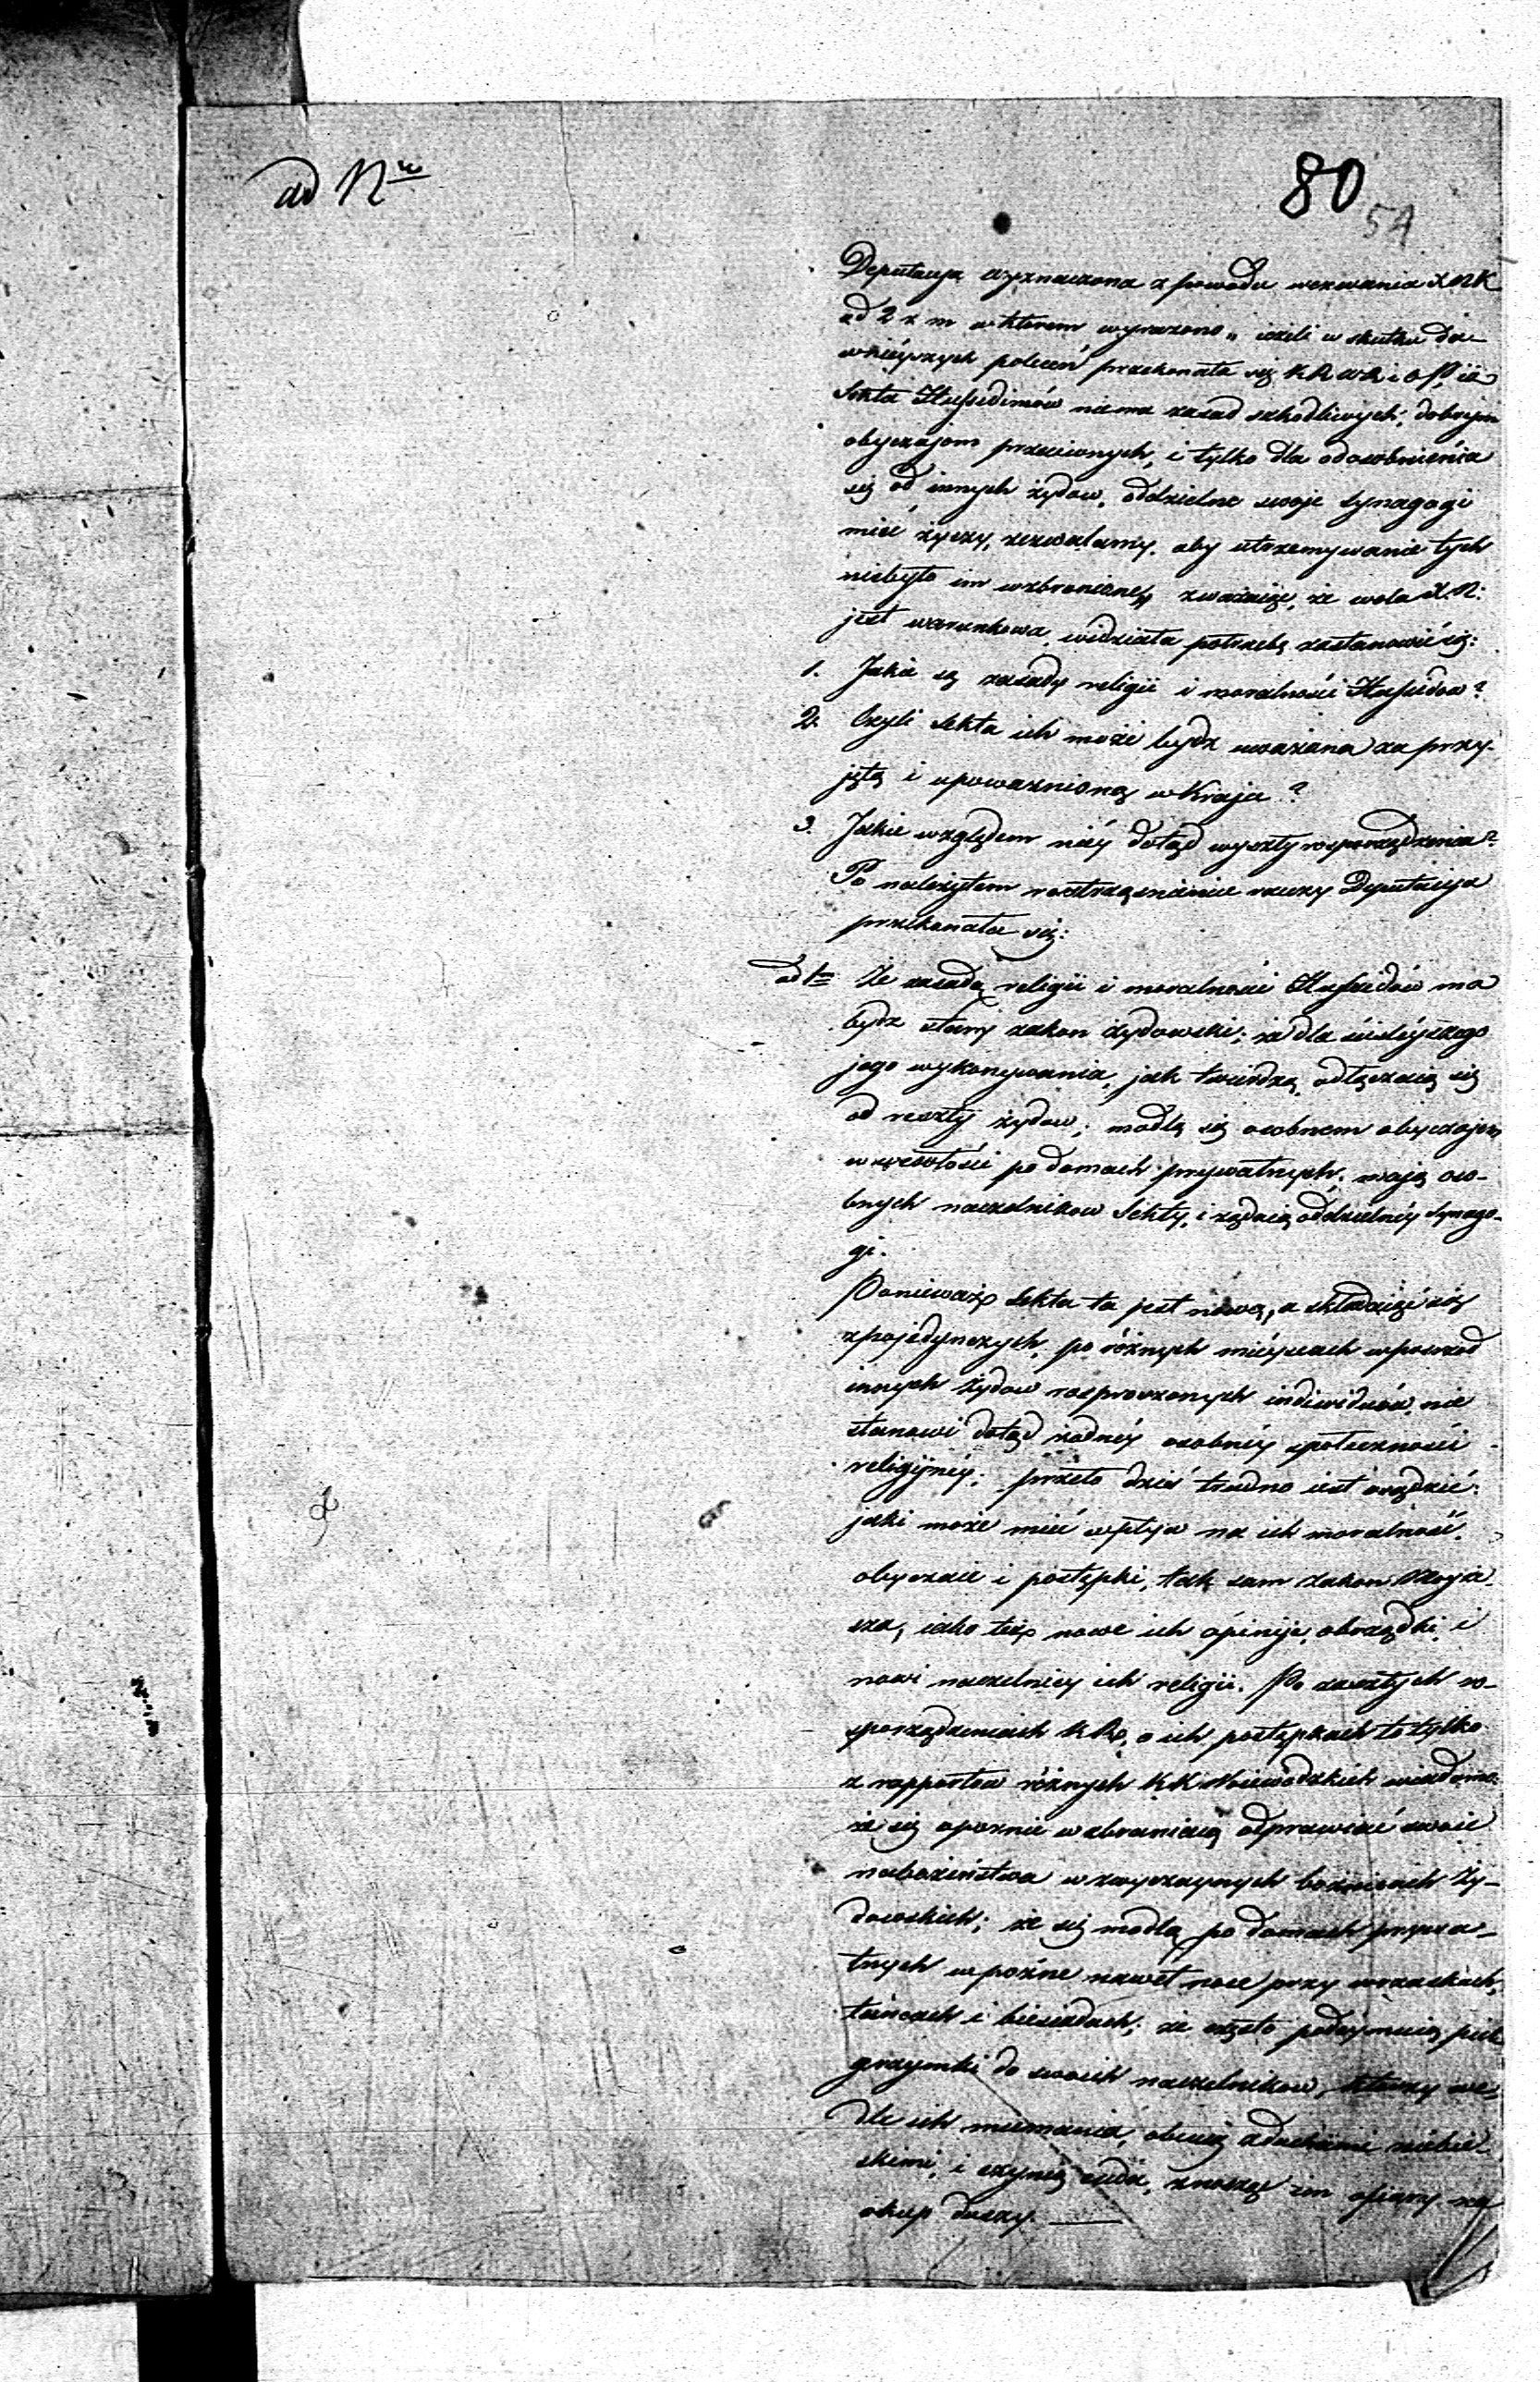 ad Nrū
80
54
Deputacya wyznaczona z powodu wezwania X N K
ad 2 z m w którem wyrażono „ ieżeli w skutku da-
wnieyszych poleceń przekonała się K R W R i O P. iż
Sekta Hussidimów niema zasad szkodliwych, dobrym
obyczajom przeciwnych, i tylko dla odosobnienia
się od innych żydów, oddzielne swoje synagogi
mieć życzy, zezwalamy, aby utrzymywanie tych
niebyło im wzbronione„ zważaiąc, że wola X. N:
jest warunkowa, widziała potrzebę zastanowić się:
1. Jakie są zasady religii i moralności Hussidów?
2. Czyli Sekta ich może bydź uważana za przy-
jętą i upoważnioną w Kraju?
3. Jakie względem niéy dotąd wyszły rozporządzenia?
Po należytem roztrząśnieniu rzeczy Deputacya
przekonała się:
ad 1m Że zasadą religii i moralności Hussidów ma
bydź stary zakon żydowski; że dla ściśléyszego
jego wykonywania, jak twierdzą, odłączaią się
od reszty żydów; modlą się osobnem obyczajem
w wesołości po domach prywatnych; mają oso-
bnych naczelników Sekty, i żądaią oddzielnéy synago-
gi.
Ponieważ Sekta ta jest nową, a składaiąc się
z pojedynczych, po różnych mieyscach wpośrzód
innych Żydów rosproszonych indiwiduów, nie
stanowi dotąd żadnéy osobnéy społeczności
religijnéy; przeto dziś trudno iest osądzić:
jaki może mieć wpływ na ich moralność,
obyczaie i postępki, tak sam zakon Moyże-
sza, iako też nowe ich opinije, obrządki, i
nowi naczelnicy ich religii. Po zaszłych ro-
sporządzeniach K Rz, o ich postępkach to tylko
z rapportów różnych K K Woiewódzkich wiadomo:
że się opornie wzbraniaią odprawiać swoie
nabożeństwa w zwyczaynych bożnicach Ży-
dowskich; że się modlą po domach prywa-
tnych w późne nawet noce przy wrzaskach,
tańcach i biesiadach; że często podeymuią piel
grzymki do swoich naczelników, którzy we-
dle ich mniemania, obcuią z duchami niebie-
skimi, i czynią cuda, znosząc im ofiary na
okup duszy.